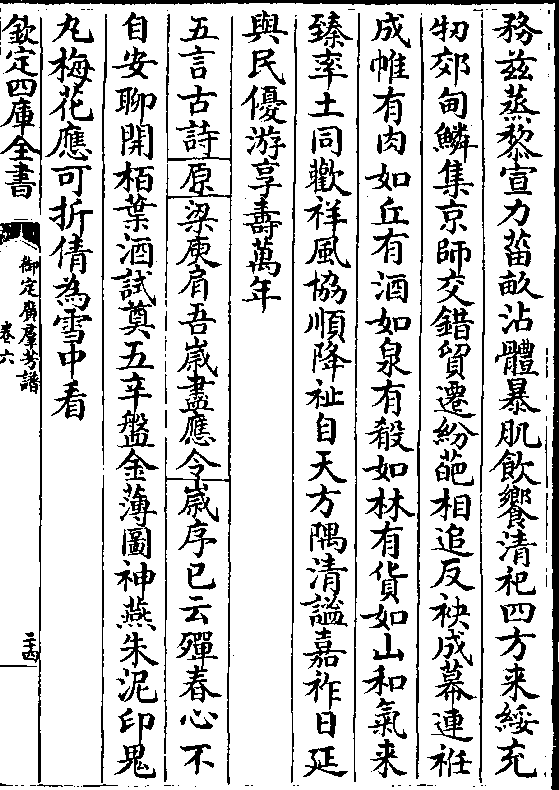 務兹蒸黎宣力菑畝沾體暴肌飲饗清祀四方来綏充
牣郊甸鱗集京師交錯貿遷紛葩相追反袂成幕連袵
成帷有肉如丘有酒如泉有殽如林有貨如山和氣来
臻率土同歡祥風協順降祉自天方隅清謐嘉祚日延
與民優游享壽萬年
五言古詩原梁庾肩吾嵗盡應令嵗序已云殫春心不
自安聊開栢葉酒試奠五辛盤金薄圖神燕朱泥印鬼
丸梅花應可折倩為雪中看
欽定四庫全書
御定廣羣芳譜
卷六
二十四